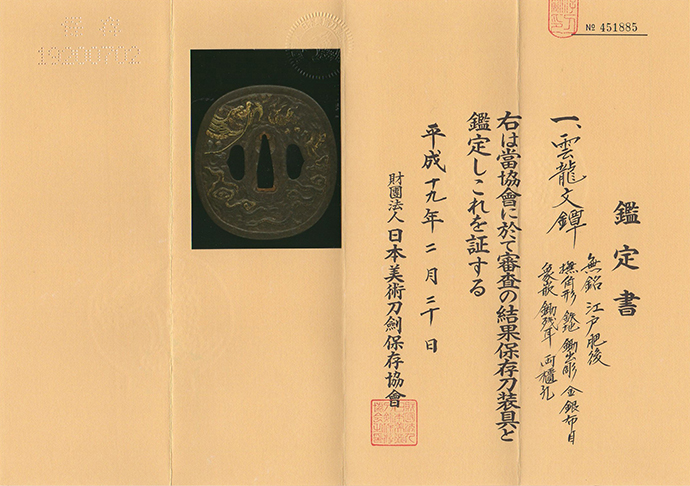 № 451885
鑑定書
一、雲龍文鐔
無銘 江戸肥後
撫角形 鉄地 鋤出彫 金銀布目
象嵌 鋤残耳 両櫃孔
右は當協會に於て審査の結果保存刀装具と
鑑定しこれを証する
平成十九年二月二十日
財團法人日本美術刀劍保存協會
保存